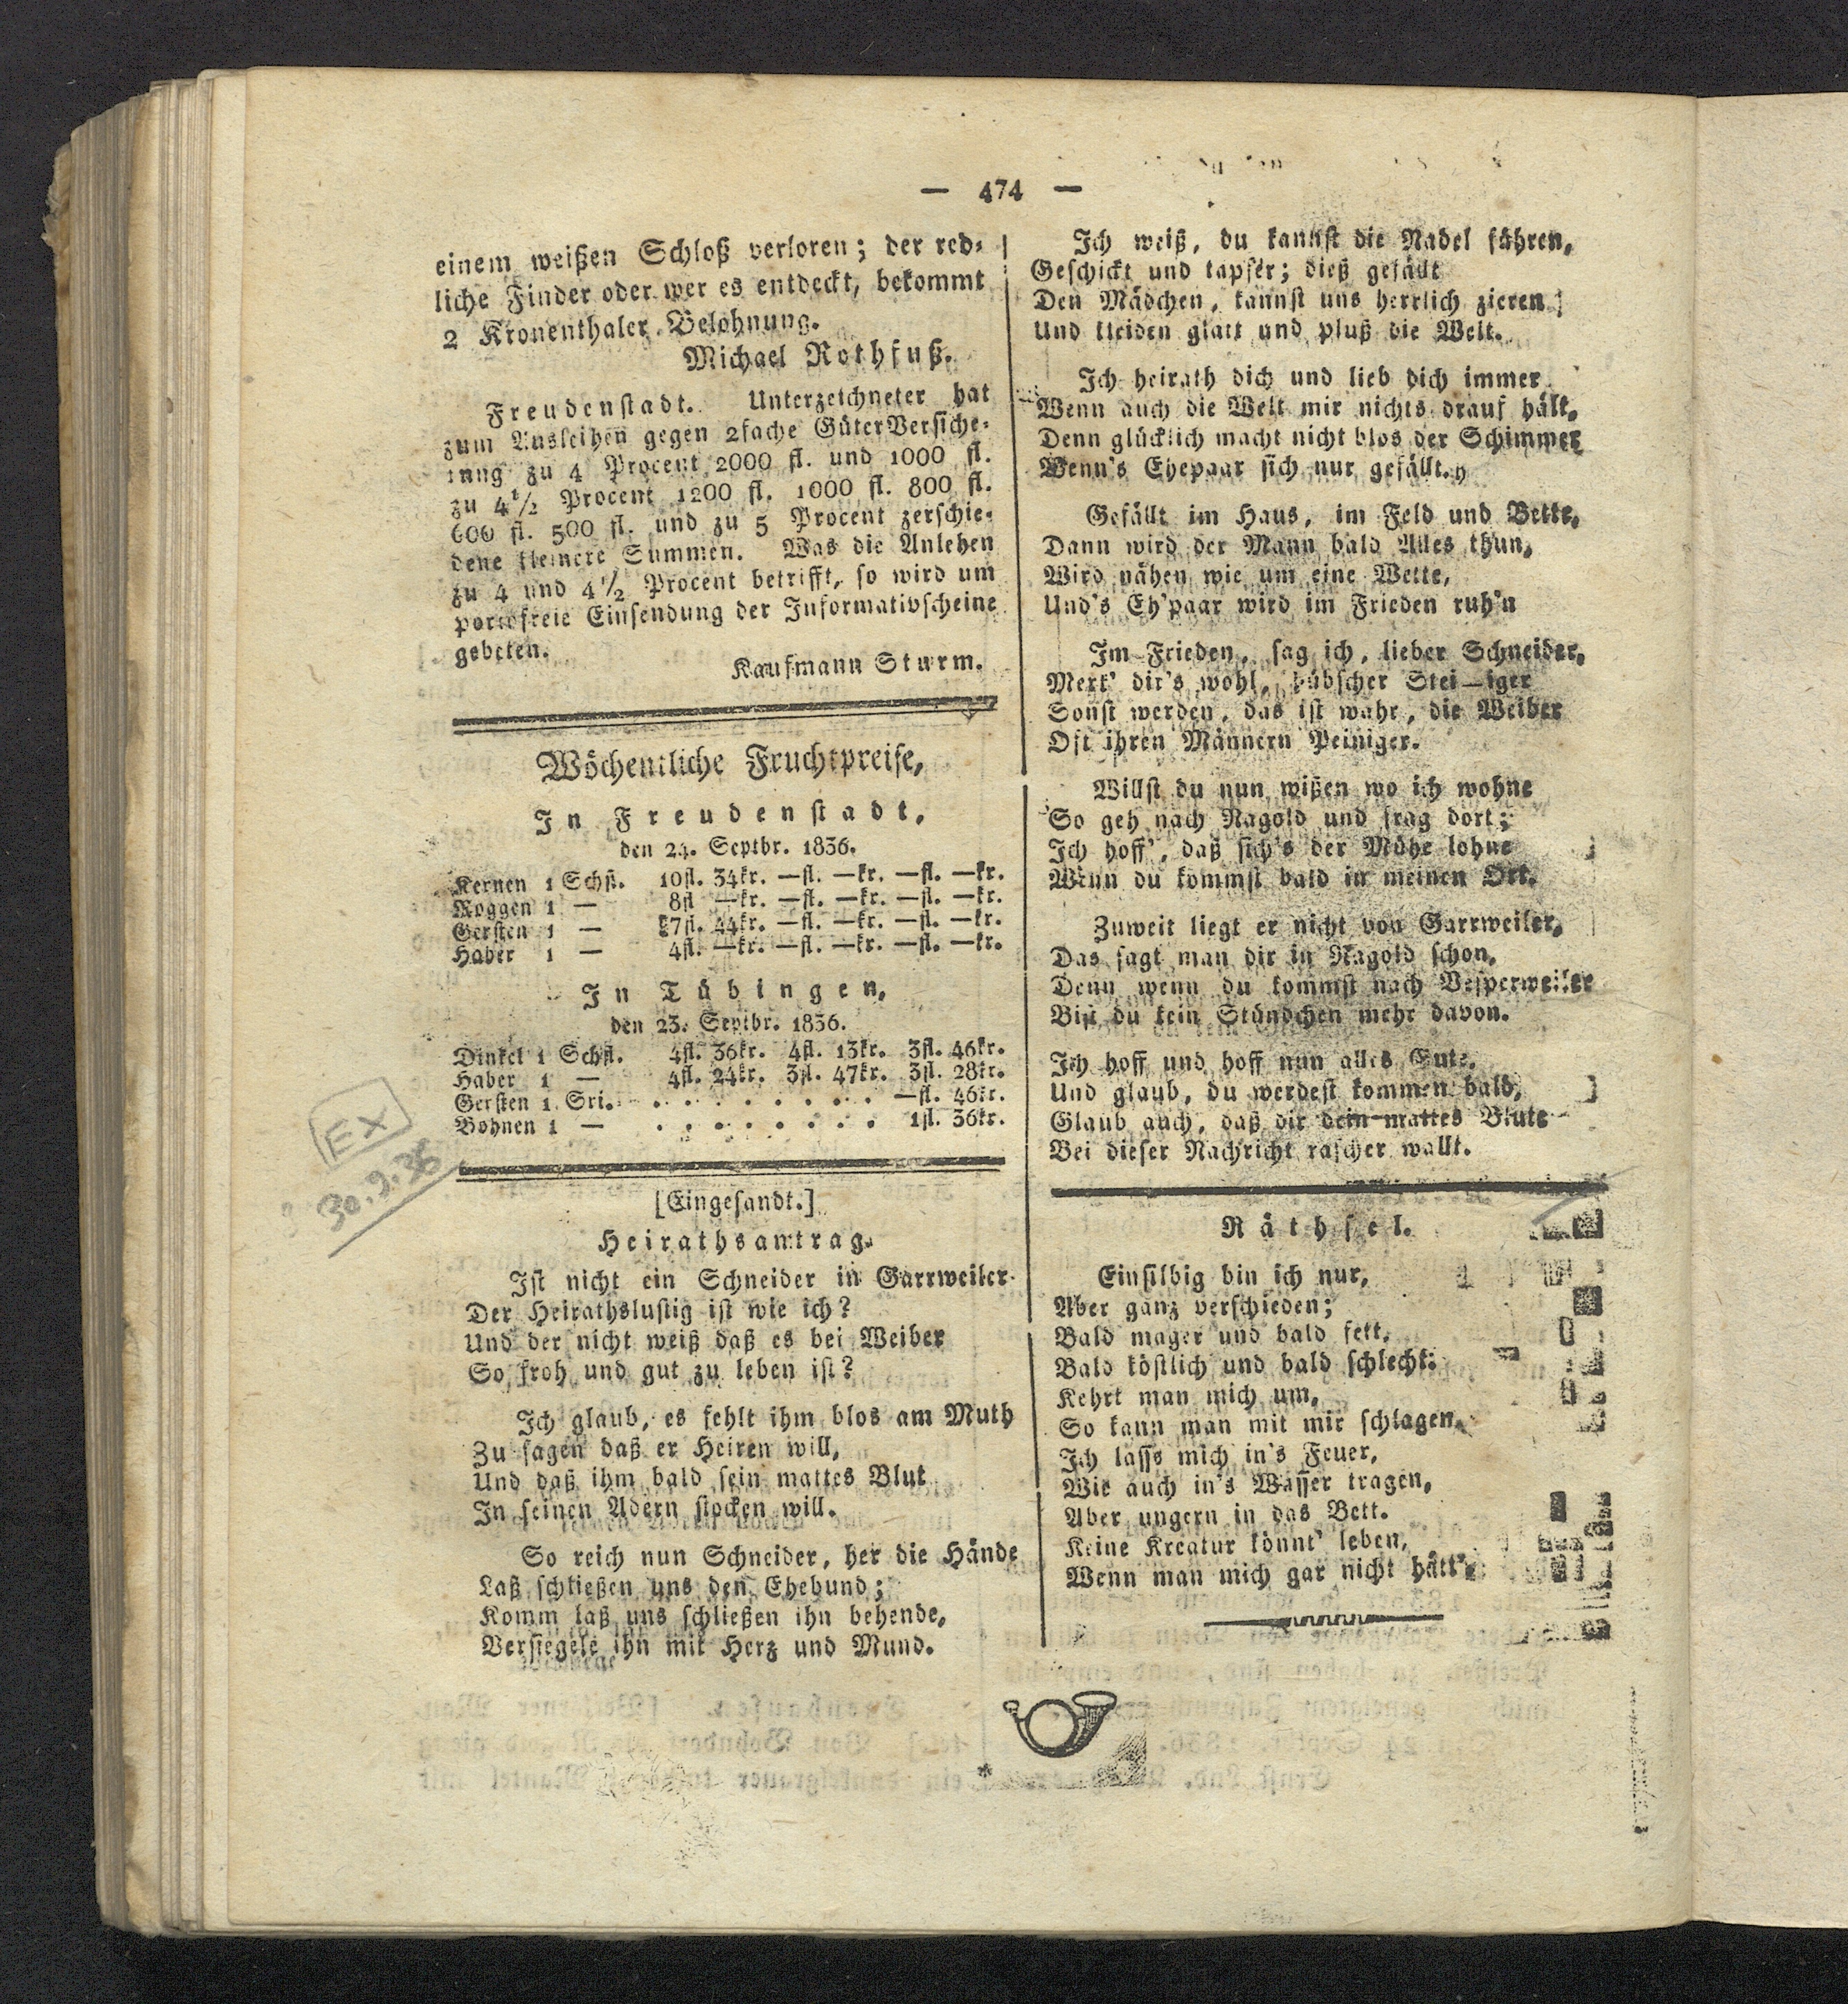 — 474 —
einem weißen Schloß verloren; der red-
liche Finder oder wer es entdeckt, bekommt
2 Kronenthaler Belohnung.
Michael Rothfuß.
Freudenstadt. Unterzeichneter hat
zum Ausleihen gegen 2fache GüterVersiche-
rung zu 4 Procent 2000 fl. und 1000 fl.
zu 4 1/2 Procent 1200 fl. 1000 fl. 800 fl.
600 fl. 500 fl. und zu 5 Procent zerschie-
dene kleinere Summen. Was die Anlehen
zu 4 und 4 1/2 Procent betrifft, so wird um
portofreie Einsendung der Informativscheine
gebeten.
Kaufmann Sturm.
Wöchentliche Fruchtpreise,
In Freudenstadt,
den 24. Septbr. 1836.
Kernen 1 Schfl. 10fl. 34kr. —fl. —kr. —fl. —kr.
Roggen 1 — 8fl —kr. —fl. —kr. —fl. —kr.
Gersten 1 — 7fl. 44kr. —fl. —kr. —fl. —kr.
Haber 1 — 4fl. —kr. —fl. —kr. —fl. —kr.
In Tübingen,
den 23. Septbr. 1836.
Dinkel 1 Schfl. 4fl. 36kr. 4fl. 13kr. 3fl. 46kr.
Haber 1 — 4fl. 24kr. 3fl. 47kr. 3fl. 28kr.
Gersten 1 Sri. . . . . . . . . —fl. 46kr.
Bohnen 1 — . . . . . . . . 1fl. 36kr.
EX
30.9.36
[Eingesandt.]
Heirathsantrag.
Ist nicht ein Schneider in Garrweiler
Der Heirathslustig ist wie ich?
Und der nicht weiß daß es bei Weiber
So froh und gut zu leben ist?
Ich glaub, es fehlt ihm blos am Muth
Zu sagen daß er Heiren will,
Und daß ihm bald sein mattes Blut
In seinen Adern stocken will.
So reich nun Schneider, her die Hände
Laß schließen uns den Ehebund;
Komm laß uns schließen ihn behende,
Versiegele ihn mit Herz und Mund.
Ich weiß, du kannst die Nadel führen,
Geschickt und tapfer; dieß gefällt
Den Mädchen, kannst uns herrlich zieren
Und kleiden glatt und pluß die Welt.
Ich heirath dich und lieb dich immer
Wenn auch die Welt mir nichts drauf hält,
Denn glücklich macht nicht blos der Schimmer
Wenn's Ehepaar sich nur gefällt.
Gefällt im Haus, im Feld und Bette,
Dann wird der Mann bald Alles thun,
Wird nähen wie um eine Wette,
Und's Eh'paar wird im Frieden ruh'n
Im Frieden, sag ich, lieber Schneider,
Merk' dir's wohl, hübscher Stei—iger
Sonst werden, das ist wahr, die Weiber
Oft ihren Männern Peiniger.
Willst du nun wißen wo ich wohne
So geh nach Nagold und frag dort;
Ich hoff', daß sich's der Mühe lohne
Wenn du kommst bald in meinen Ort.
Zuweit liegt er nicht von Garrweiler,
Das sagt man dir in Nagold schon,
Denn wenn du kommst nach Vesperweiler
Bist du kein Stündchen mehr davon.
Ich hoff und hoff nun alles Gute,
Und glaub, du werdest kommen bald,
Glaub auch, daß dir dein mattes Blute
Bei dieser Nachricht rascher wallt.
Räthsel.
Einsilbig bin ich nur,
Aber ganz verschieden;
Bald mager und bald fett,
Bald köstlich und bald schlecht:
Kehrt man mich um,
So kann man mit mir schlagen.
Ich lasse mich in's Feuer,
Wie auch in's Wasser tragen,
Aber ungern in das Bett.
Keine Kreatur könnt' leben,
Wenn man mich gar nicht hätt'.